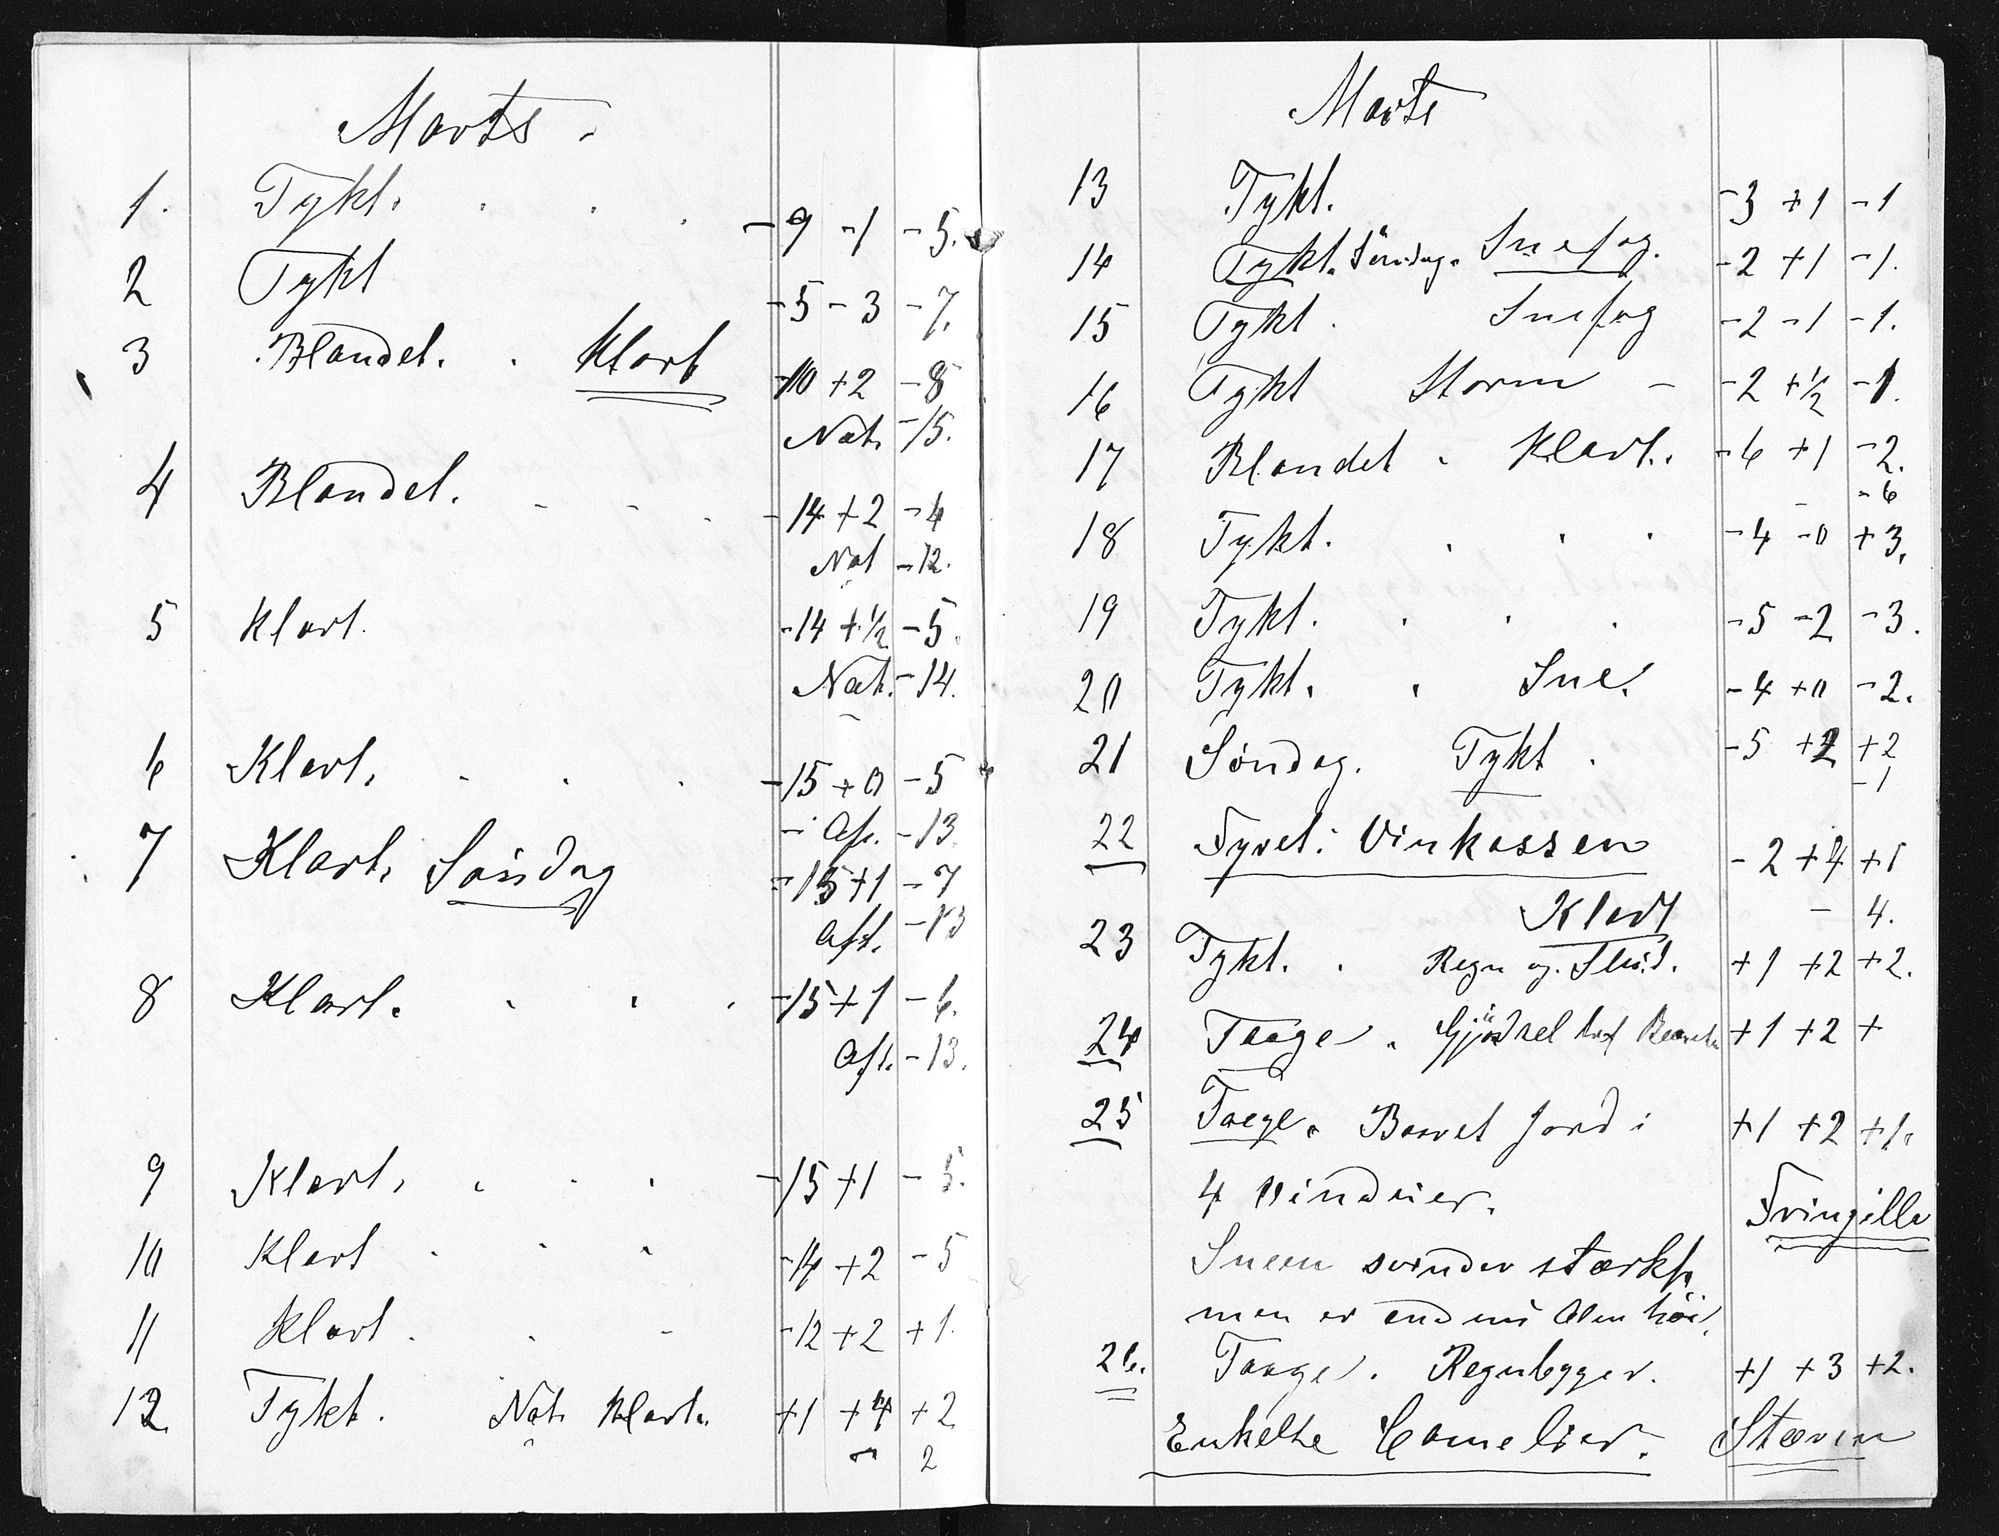 Marts.
1. Tykt. -9 -1 -5.
2 Tykt -5 -3 -7.
3 Blandet. Klart -10 +2 -8
Nat. -15.
4 Blandet. -14 +2 -4
Nat -12.
5 Klart. -14 +½ -5.
Nat. -14.
6 Klart. -15 +0 -5
Aft. -13
7 Klart. Søndag -15 +1 -7
Aft. -13
8 Klart. -15 +1 -6.
Aft. -13.
9 Klart. -15 +1 -5.
10 Klart -14 +2 -5
11 Klart. -12 +2 +1.
12 Tykt. Nat. Klart. +1 +4 +2
- 2
Marts
13 Tykt. -3 +1 -1
14 Tykt. Söndag. Snefog. -2 +1 -1.
15 Tykt. Snefog -2 -1 -1.
16 Tykt Storm -2 +½ -1.
17 Blandet. Klart. -6 +1 -2.
-6
18 Tykt. -4 -0 +3.
19 Tykt. -5 -2 -3.
20 Tykt. Sne. -4 +0 -2.
21 Søndag. Tykt. -5 +2 +2
-1
22 Fyret i Vinkassen -2 +4 +1
Klart - 4.
23 Tykt. Regn og Slud. +1 +2 +2.
24 Taage. Gjødsel +1 +2 +
25 Taage. Baaret Jord i +1 +2 +1.
4 Vinduer. Fringilla
Sneen svinder stærkt,
men er endnu Alen høi.
26. Taage. Regnbyger. +1 +3 +2.
Enkelte Camelier. Stæren